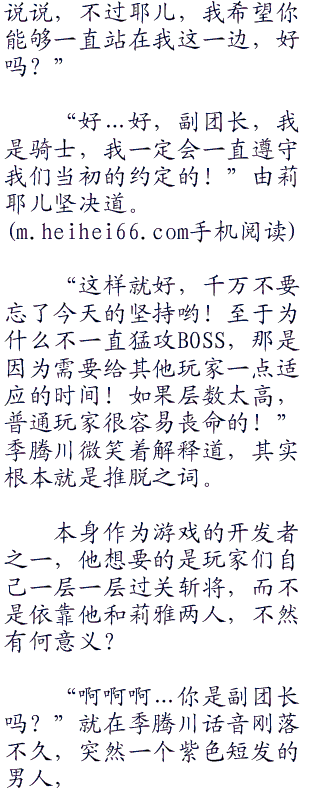 说说，不过耶儿，我希望你
能够一直站在我这一边，好
吗？”
“好…好，副团长，我
是骑士，我一定会一直遵守
我们当初的约定的！”由莉
耶儿坚决道。
(m.heihei66.com手机阅读)
“这样就好，千万不要
忘了今天的坚持哟！至于为
什么不一直猛攻BOSS，那是
因为需要给其他玩家一点适
应的时间！如果层数太高，
普通玩家很容易丧命的！”
季腾川微笑着解释道，其实
根本就是推脱之词。
本身作为游戏的开发者
之一，他想要的是玩家们自
己一层一层过关斩将，而不
是依靠他和莉雅两人，不然
有何意义？
“啊啊啊…你是副团长
吗？”就在季腾川话音刚落
不久，突然一个紫色短发的
男人，